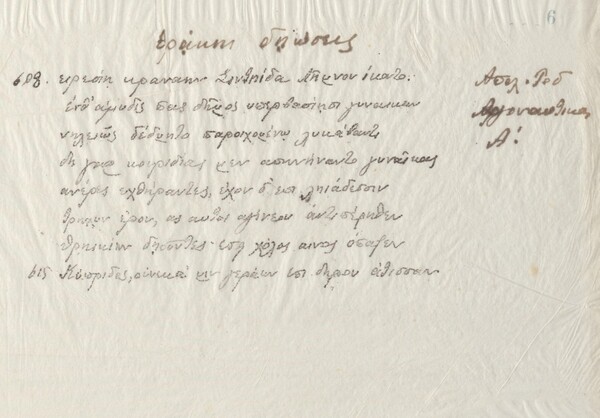 6
θράκην δηώσεις
608. ειρεσίη κραναην Σιντηίδα Λημνον ίκοντο.
ένθ' αμυδις πας δήμος υπερβασίησι γυναικων
νηλειώς δέδμητο παροιχομένω λυκάβαντι
δη γαρ κουριδίας μεν απηνήναντο γυναίκας
ανέρες εχθήραντες, έχον δ' επι ληιάδεσσιν
τρηχυν έρον, ας αυτοι αγίνεον αντιπέρηθεν
Θρηικίην δηούντες· επει χόλος αινος όπαζεν
615 Κύπριδος, ούνεκά μιν γεράων επι δηρον άτισσαν
Απολ. Ροδ
Αργοναυτικα
Α'.